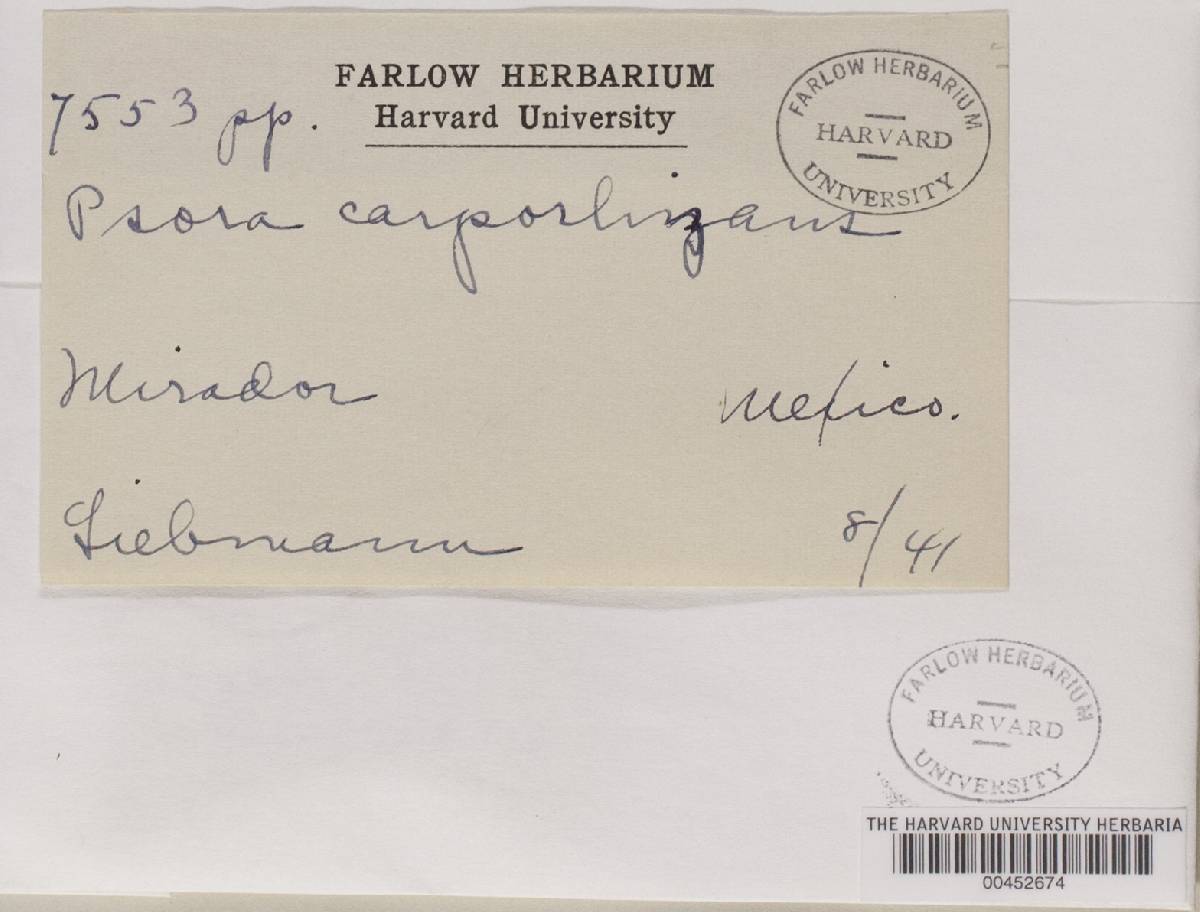 FARLOW HERBARIUM
Harvard University
7553 pp.
FARLOW HERBARIUM
HARVARD
UNIVERSITY
Psora
Mirador Mexico.
Liebmann 8/41
FARLOW HERBARIUM
HARVARD
UNIVERSITY
THE HARVARD UNIVERSITY HERBARIA
00452674